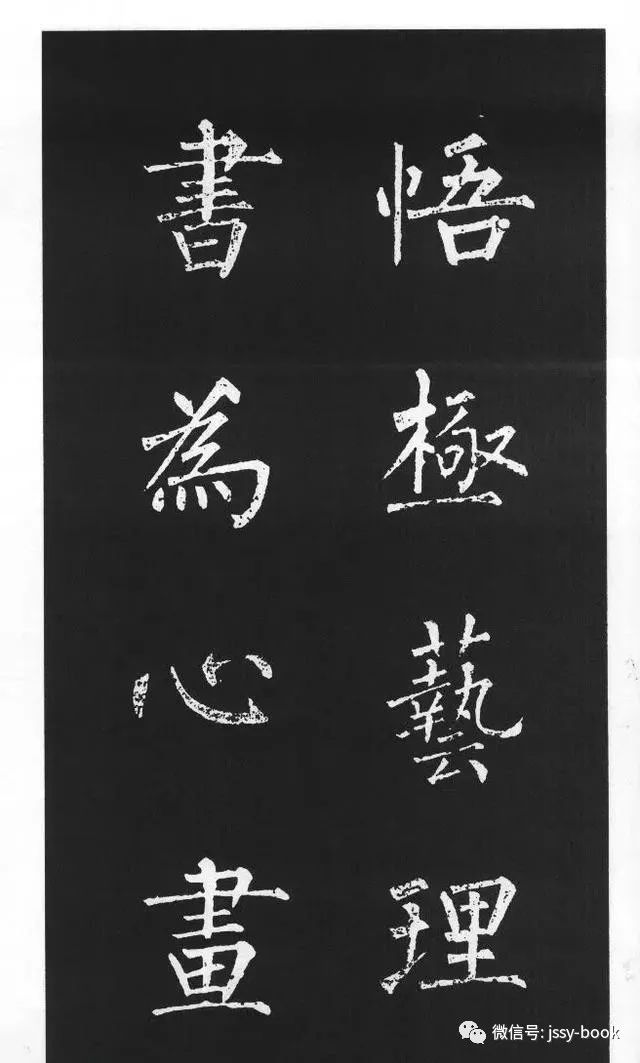 悟極藝理
書為心畫
微信号: jssy-book